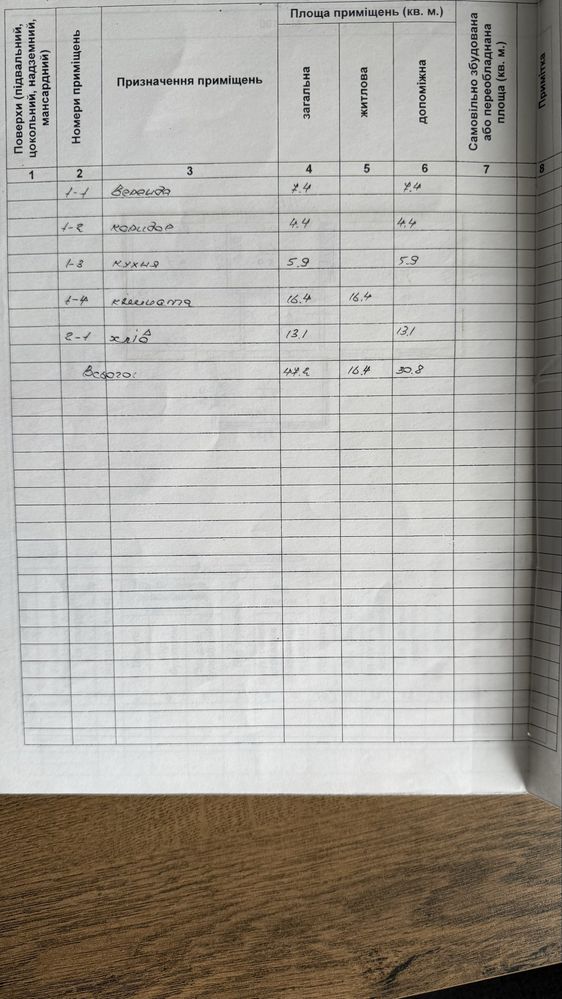 Поверхи (підвальний, цокольний, надземний, мансардний)
Номери приміщень
Призначення приміщень
Площа приміщень (кв. м.)
загальна
житлова
допоміжна
Самовільно збудована або переобладнана площа (кв. м.)
Примітка
1 2 3 4 5 6 7 8
1-1 Веранда 7.4 7.4
1-2 коридор 4.4 4.4
1-3 кухня 5.9 5.9
1-4 кімната 16.4 16.4
2-1 хлів 13.1 13.1
Всього: 47.2 16.4 30.8